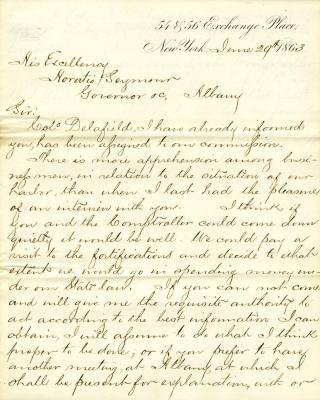 54 & 56 Exchange Place,
New York June 29th 1863
His Excellency
Horatio Seymour
Governor &c, Albany
Sir;
Colo Delafield, I have already informed
you, has been assigned to our commission.
There is more apprehension among busi-
ness men, in relation to the situation of our
harbor, than when I last had the pleasure
of an interview with you. I think if
you and the Comptroller could come down
quietly it would be well. We could pay a
visit to the fortifications and decide to what
extent we would go in spending money un-
der our State law. If you can not come
and will give me the requisite authority to
act according to the best information I can
obtain, I will assume to do what I think
proper to be done; or if you prefer to have
another meeting, at Albany, at which I
shall be present for explanation, with or